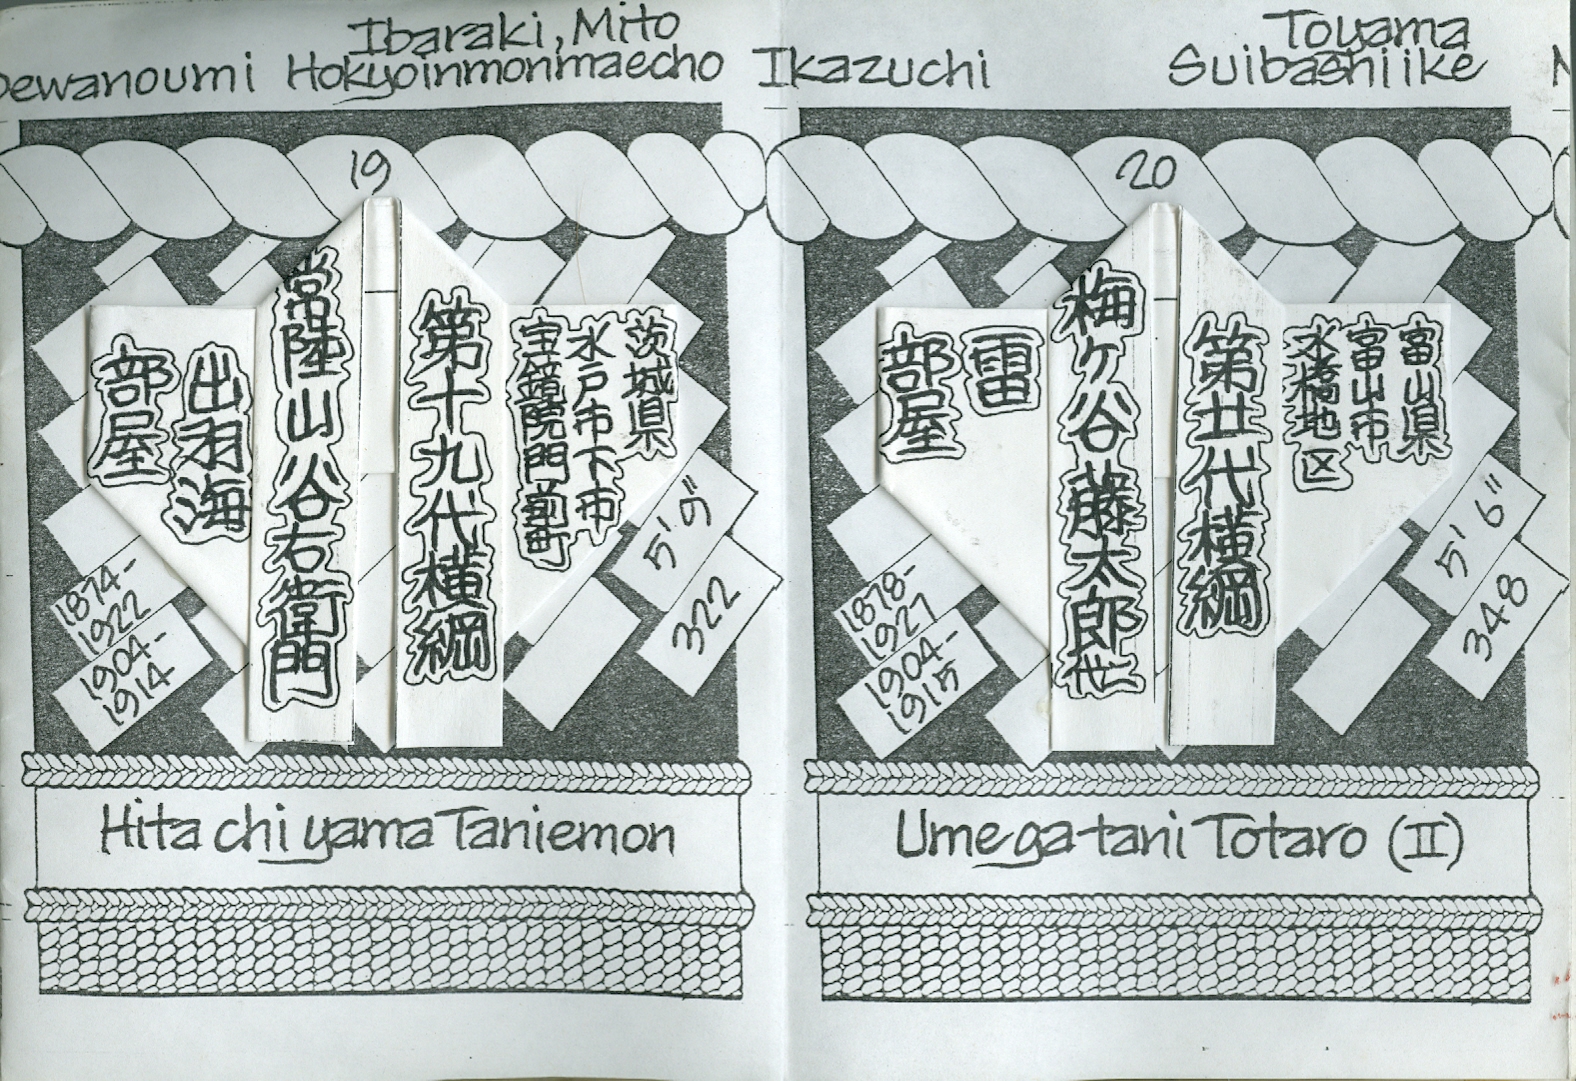 Dewanoumi
Ibaraki, Mito
Hokyoinmonmaecho
19
茨城県
水戸市下市
宝鏡院門前町
第十九代横綱
常陸山谷右衛門
出羽海
部屋
5' 9"
322
1874-
1922
1904-
1914
Hitachiyama Taniemon
Ikazuchi
Toyama
Suibashiike
20
富山県
富山市
水橋地区
第廿代横綱
梅ヶ谷藤太郎
雷
部屋
5' 6"
348
1878-
1927
1904-
1915
Umegatani Totaro (II)